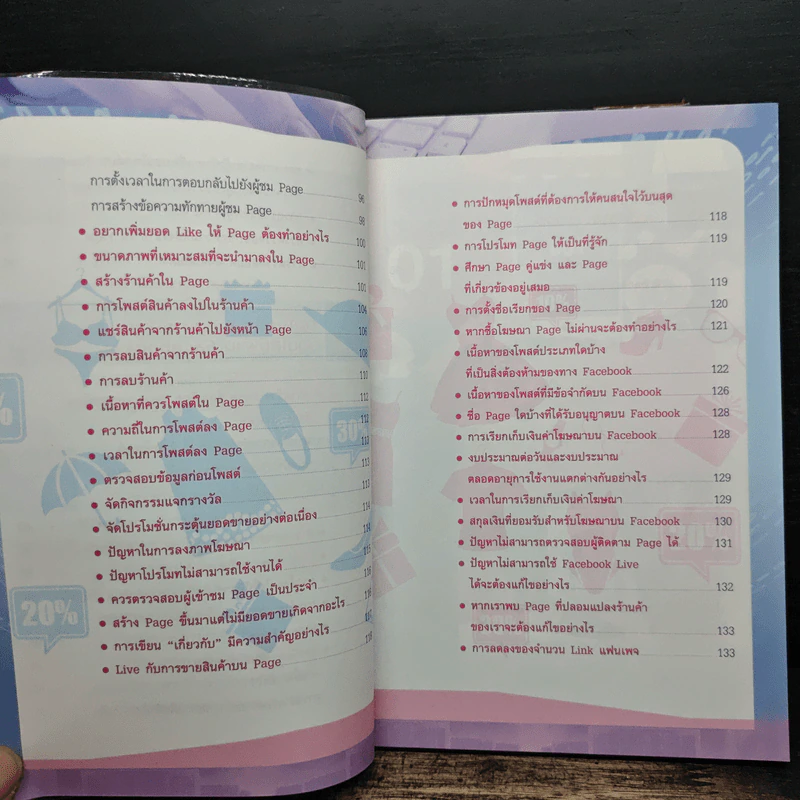 การตั้งเวลาในการตอบกลับไปยังผู้ชม Page 96
การสร้างข้อความทักทายผู้ชม Page 98
• อยากเพิ่มยอด Like ให้ Page ต้องทำอย่างไร 100
• ขนาดภาพที่เหมาะสมที่จะนำมาลงใน Page 101
• สร้างร้านค้าใน Page
• การโพสต์สินค้าลงไปในร้านค้า 104
• แชร์สินค้าจากร้านค้าไปยังหน้า Page 106
• การลบสินค้าจากร้านค้า 108
• การลบร้านค้า 110
• เนื้อหาที่ควรโพสต์ใน Page 112
• ความถี่ในการโพสต์ลง Page 112
• เวลาในการโพสต์ลง Page
• ตรวจสอบข้อมูลก่อนโพสต์ 113
• จัดกิจกรรมแจกรางวัล 113
• จัดโปรโมชั่นกระตุ้นยอดขายอย่างต่อเนื่อง 114
• ปัญหาในการลงภาพโฆษณา 114
• ปัญหาโปรโมทไม่สามารถใช้งานได้ 115
• ควรตรวจสอบผู้เข้าชม Page เป็นประจำ 116
• สร้าง Page ขึ้นมาแต่ไม่มียอดขายเกิดจากอะไร 116
• การเขียน "เกี่ยวกับ" มีความสำคัญอย่างไร 117
• Live กับการขายสินค้าบน Page 118
20%
• การปักหมุดโพสต์ที่ต้องการให้คนสนใจไว้บนสุด
ของ Page 118
• การโปรโมท Page ให้เป็นที่รู้จัก 119
• ศึกษา Page คู่แข่ง และ Page
ที่เกี่ยวข้องอยู่เสมอ 119
• การตั้งชื่อเรียกของ Page 120
• หากซื้อโฆษณา Page ไม่ผ่านจะต้องทำอย่างไร 121
• เนื้อหาของโพสต์ประเภทใดบ้าง
ที่เป็นสิ่งต้องห้ามของทาง Facebook 122
• เนื้อหาของโพสต์ที่มีข้อจำกัดบน Facebook 126
• ชื่อ Page ใดบ้างที่ได้รับอนุญาตบน Facebook 128
• การเรียกเก็บเงินค่าโฆษณาบน Facebook 128
• งบประมาณต่อวันและงบประมาณ
ตลอดอายุการใช้งานแตกต่างกันอย่างไร 129
• เวลาในการเรียกเก็บเงินค่าโฆษณา 129
• สกุลเงินที่ยอมรับสำหรับโฆษณาบน Facebook 130
• ปัญหาไม่สามารถตรวจสอบผู้ติดตาม Page ได้ 131
• ปัญหาไม่สามารถใช้ Facebook Live
ได้จะต้องแก้ไขอย่างไร 132
• หากเราพบ Page ที่ปลอมแปลงร้านค้า
ของเราจะต้องแก้ไขอย่างไร 133
• การลดลงของจำนวน Link แฟนเพจ 133